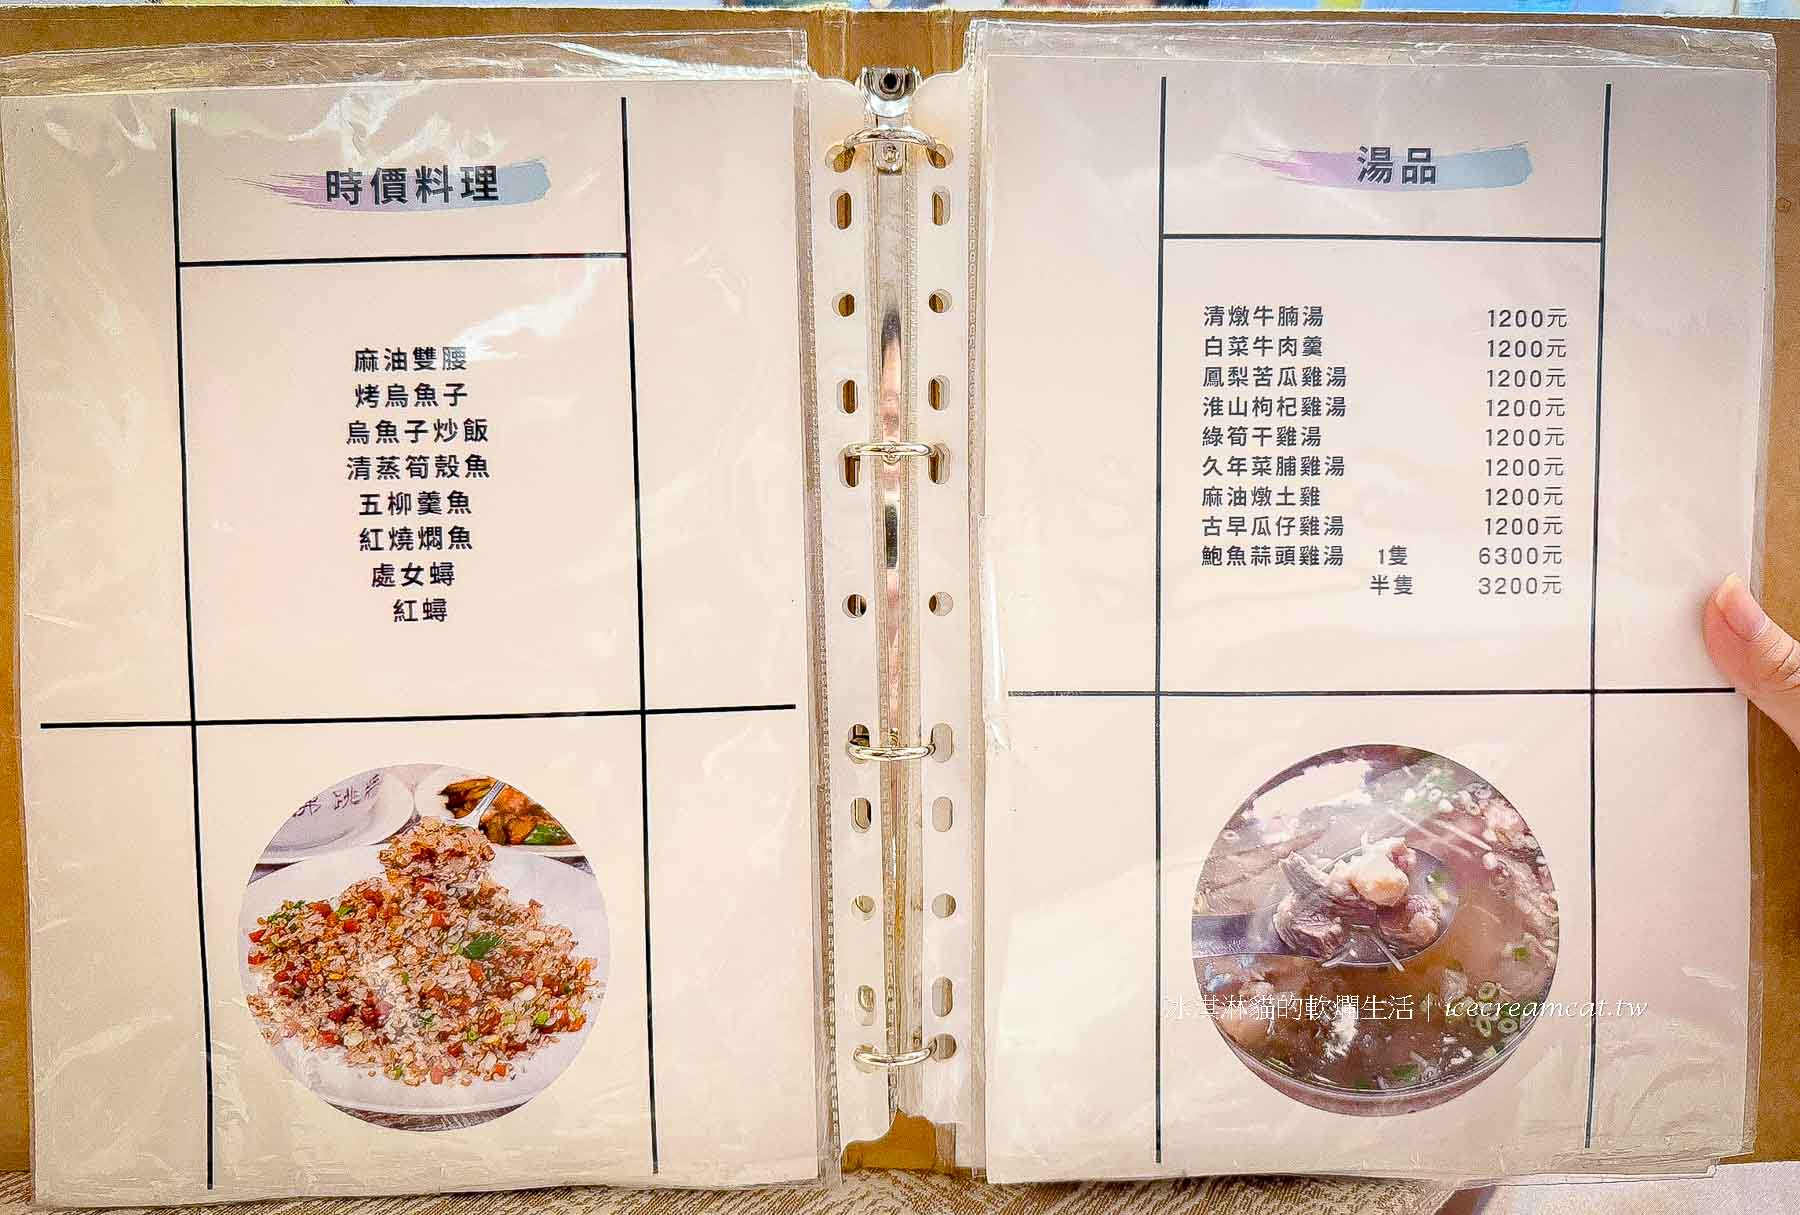 時價料理
麻油雙腰
烤烏魚子
烏魚子炒飯
清蒸筍殼魚
五柳羹魚
紅燒燜魚
處女蟳
紅蟳
湯品
清燉牛腩湯 1200元
白菜牛肉羹 1200元
鳳梨苦瓜雞湯 1200元
淮山枸杞雞湯 1200元
綠筍干雞湯 1200元
久年菜脯雞湯 1200元
麻油燉土雞 1200元
古早瓜仔雞湯 1200元
鮑魚蒜頭雞湯 1隻 6300元
半隻 3200元
冰淇淋貓的軟爛生活｜icecreamcat.tw